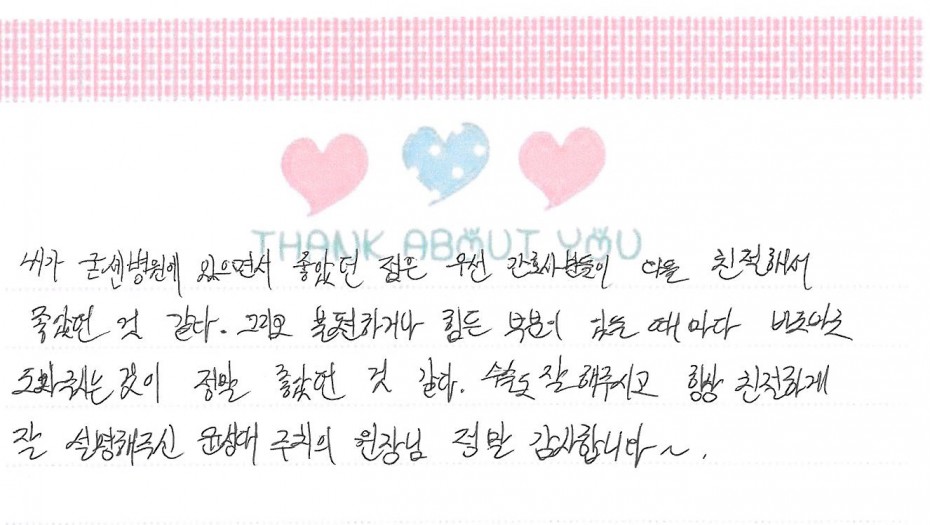 THANK ABOUT YOU
내가 굳센병원에 있으면서 좋았던 점은 우선 간호사분들이 다들 친절해서
좋았던 것 같다. 그리고 불편하거나 힘든 부분이 있는 때마다 바로바로
도와주시는 것이 정말 좋았던 것 같다. 수술도 잘 해주시고 항상 친절하게
잘 설명해주신 윤성대 주치의 원장님 정말 감사합니다~.